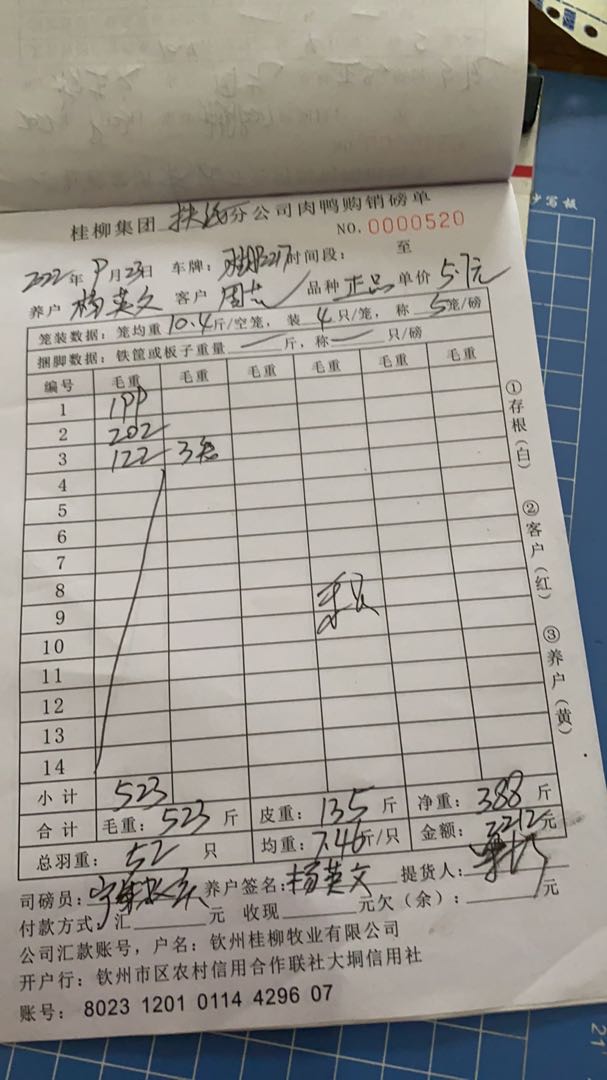 桂柳集团 扶绥分公司肉鸭购销磅单
NO. 0000520
2022年9月23日 车牌: 时间段: 至
养户 杨英文 客户 周 品种 正品 单价 5.7元
笼装数据: 笼均重 10.4斤/空笼, 装 4 只/笼, 称 5笼/磅
捆脚数据: 铁筐或板子重量 斤, 称 只/磅
编号 毛重 毛重 毛重 毛重 毛重 毛重
1 199
2 202
3 122 3笼
4
5
6
7
8
9
10
11
12
13
14
小计 523
合计 毛重: 523 斤 皮重: 135 斤 净重: 388 斤
总羽重: 52 只 均重: 7.46斤/只 金额: 2212元
司磅员: 养户签名: 杨英文 提货人:
付款方式: 汇 元 收现 元欠(余): 元
公司汇款账号, 户名: 钦州桂柳牧业有限公司
开户行: 钦州市区农村信用合作联社大垌信用社
账号: 8023 1201 0114 4296 07
①存根(白)
②客户(红)
③养户(黄)
写板
21